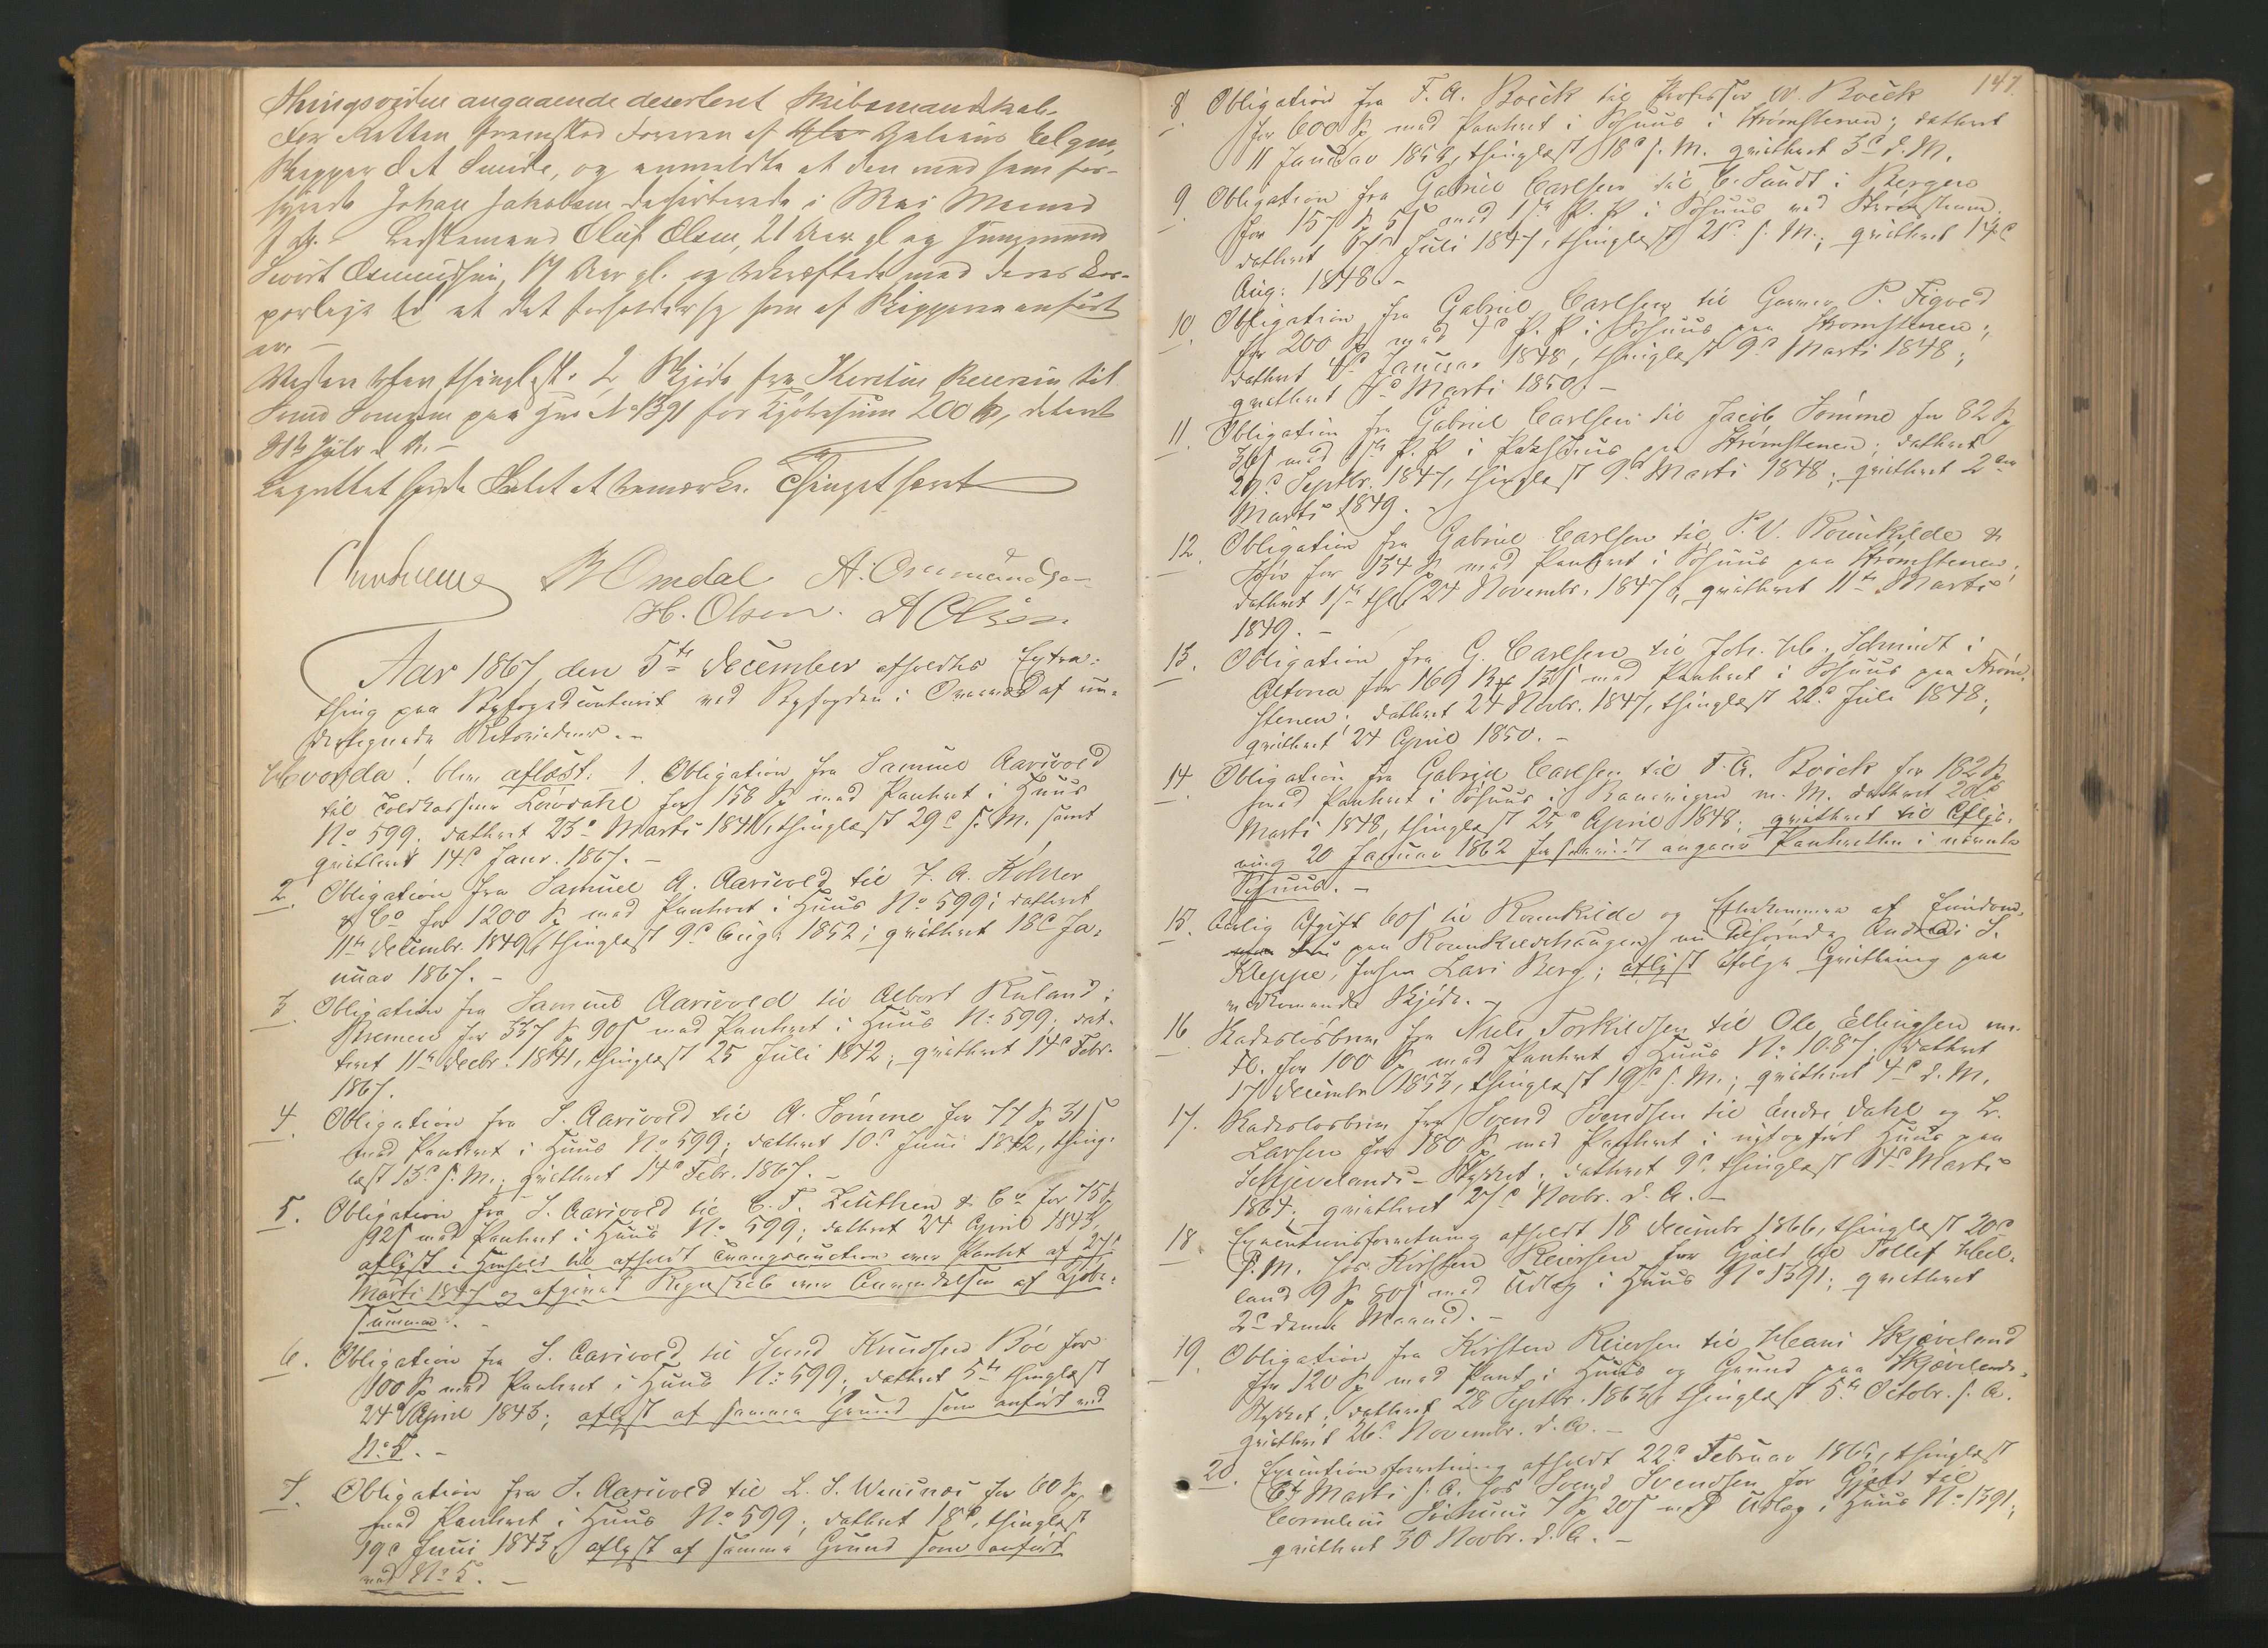 Thingsvidne angaaende deserteret Skibsmandskab.
For Retten fremstod Føreren af Galeas
Skipper Sunde, og anmeldte at den med ham for-
hyrede Johan Jakobsen deserterede i Mai Maaned
d. A. Ledsmand Oluf Olsen, 21 Aar gl. og Jungmand
Sivert Osmundsen, 17 Aar gl. og bekræftede med deres kor-
porlige Ed at det forholder sig som af Skipperen anført
er. –
Næsten blev thinglæst: 1 Skjøde fra Kirstin Reiersen til
paa Hus No 1391 for Kjøbesum 200 Sp, dateret
d. A. –
Laugrettet havde Intet at bemærke. Thinget hævet
B Omdal A. Osmundsen
H. Olsen. A Olsen.
Aar 1867, den 5te December afholdtes Extra-
thing paa Byfogedcontoiret ved Byfogden i Overværd af un-
dertegnede Retsvidner. –
Hvorda! blev aflæst: 1. Obligation fra Samuel Aarivold
til Toldkasserer Løvdahl for 158 Sp med Panteret i Huus
No 599; dateret 23de Marts 1841, thinglæst 29de s. M. samt
qvitteret 14de Janr. 1867. –
2. Obligation fra Samuel A. Aarivold til J. A. Köhler
& Co for 1200 Sp med Panteret i Huus No 599; dateret
11te Decembr. 1849, thinglæst 9de Aug. 1852; qvitteret 18de Ja-
nuar 1867. –
3. Obligation fra Samuel Aarivold til Albert Ruland i
Bremen for 337 Sp 90 s med Panteret i Huus No 599; dat-
eret 11te Decbr. 1841, thinglæst 25 Juli 1842; qvitteret 14de Febr.
1867.
4. Obligation fra S. Aarivold til A. Sömme for 77 Sp 31 s
med Panteret i Huus No 599; dateret 10de Juni 1842, thing-
læst 13de s. M.; qvitteret 14de Febr. 1867. –
5. Obligation fra S. Aarivold til C. F. Zeuthen & Co for 75 Sp
92 s med Panteret i Huus No 599; dateret 24 April 1843,
aflyst i Henhold til afholdt Tvangsauction over Pantet af 27de
Marts 1847 og afgivet Regnskab over Anvendelsen af Kjøbe-
summen. –
6. Obligation fra S. Aarivold til Svend Knudsen Bøe for
100 Sp med Panteret i Huus No 599; dateret 5te thinglæst
24de April 1843; aflyst af samme Grund som anført ved
No 5. –
7. Obligation fra S. Aarivold til L. S. for 60 Sp
med Panteret i Huus No 599; dateret 18de, thinglæst
19de Juni 1843; aflyst af samme Grund som anført
ved No 5. –
147.
8. Obligation fra F. A. Boeck til Professor W. Boeck
for 600 Sp med Panteret i Søhuus i Strømstenen; dateret
11 Januar 1858, thinglæst 18de s. M. qvitteret 3de d. M.
9. Obligation fra Gabriel Carlsen til C. Sundt i Bergen
for 157 Sp 5 s med 1ste P. P. i Søhuus ved Strømstenen,
dateret 6te Juli 1847, thinglæst 21de s. M.; qvitteret 14de
Aug: 1848. –
10. Obligation fra Gabriel Carlsen til Garver P. Figved
for 200 Sp med P. P. i Søhuus paa Strømstenen;
dateret Januar 1848, thinglæst 9de Marts 1848;
qvitteret Marts 1850. –
11. Obligation fra Gabriel Carlsen til Jacob Sömme for 82 Sp
med P. P. i Pakhuus paa Strømstenen; dateret
29de Septbr. 1847, thinglæst 9de Marts 1848; qvitteret 2den
Marts 1849. –
12. Obligation fra Gabriel Carlsen til P. V. Rosenkilde &
Søn for 134 Sp med Panteret i Søhuus paa Strømstenen;
dateret 1ste thl. 24 Novembr. 1847, qvitteret 11te Marts
1849. –
13. Obligation fra G. Carlsen til Joh. Hb. Schmidt i
Altona for 169 med Panteret i Søhuus paa Strøm-
stenen; dateret 24 Novbr. 1847, thinglæst 22de Juli 1848;
qvitteret 24 April 1850. –
14. Obligation fra Gabriel Carlsen til F. A. Boeck for 182 Sp
med Panteret i Søhuus i Banevigen m. M. dateret 20de
Marts 1848, thinglæst 25de April 1848; qvitteret til Aflys-
ning 20 Januar 1862 forsaavidt angaaer Panteretten i nævnte
Søhuus. –
15. Aarlig Afgift 60 s til Rosenkilde og Efterkommere af Eiendom-
paa Rosenkildehaugen nu tilhørende Andreas S.
Kleppe, forhen Lars Berg; aflyst ifølge Qvittering paa
vedkommende Skjøde. –
16. Skadesløsbrev fra Niels Torkildsen til Ole Ellingsen m.
Fl. for 100 Sp med Panteret i Huus No 1087; dateret
17 Decembr. 1853, thinglæst 19de s. M.; qvitteret 4de d. M.
17. Skadesløsbrev fra Svend Svendsen til Endre Dahl og L.
Larsen for 180 Sp med Panteret i nyt opført Huus paa
Schjevelands-Stykket; dateret 9de thinglæst Marts
1864; qvitteret 27de Novbr. d. A. –
18. Executionsforretning afholdt 18 Decembr 1866, thinglæst 20de
s. M. hos Kirsten Reiersen for Gjæld til Tollef Hel-
land 9 Sp 80 s med Udlæg i Huus No 1391; qvitteret
2den denne Maaned. –
19. Obligation fra Kirsten Reiersen til Hans Skjæveland
for 120 Sp med Pant i Huus og Grund paa Skjævelands-
Stykket; dateret 28 Septbr. 1863, thinglæst 5te Octobr. s. A.
qvitteret 26de Novembr. d. A. –
20. Executionsforretning afholdt 22de Februar 1865, thinglæst
6te Marts s. A. hos Svend Svendsen for Gjæld til
Cornelius 7 Sp 20 s med Udlæg i Huus No 1391;
qvitteret 30 Novbr. d. A. –